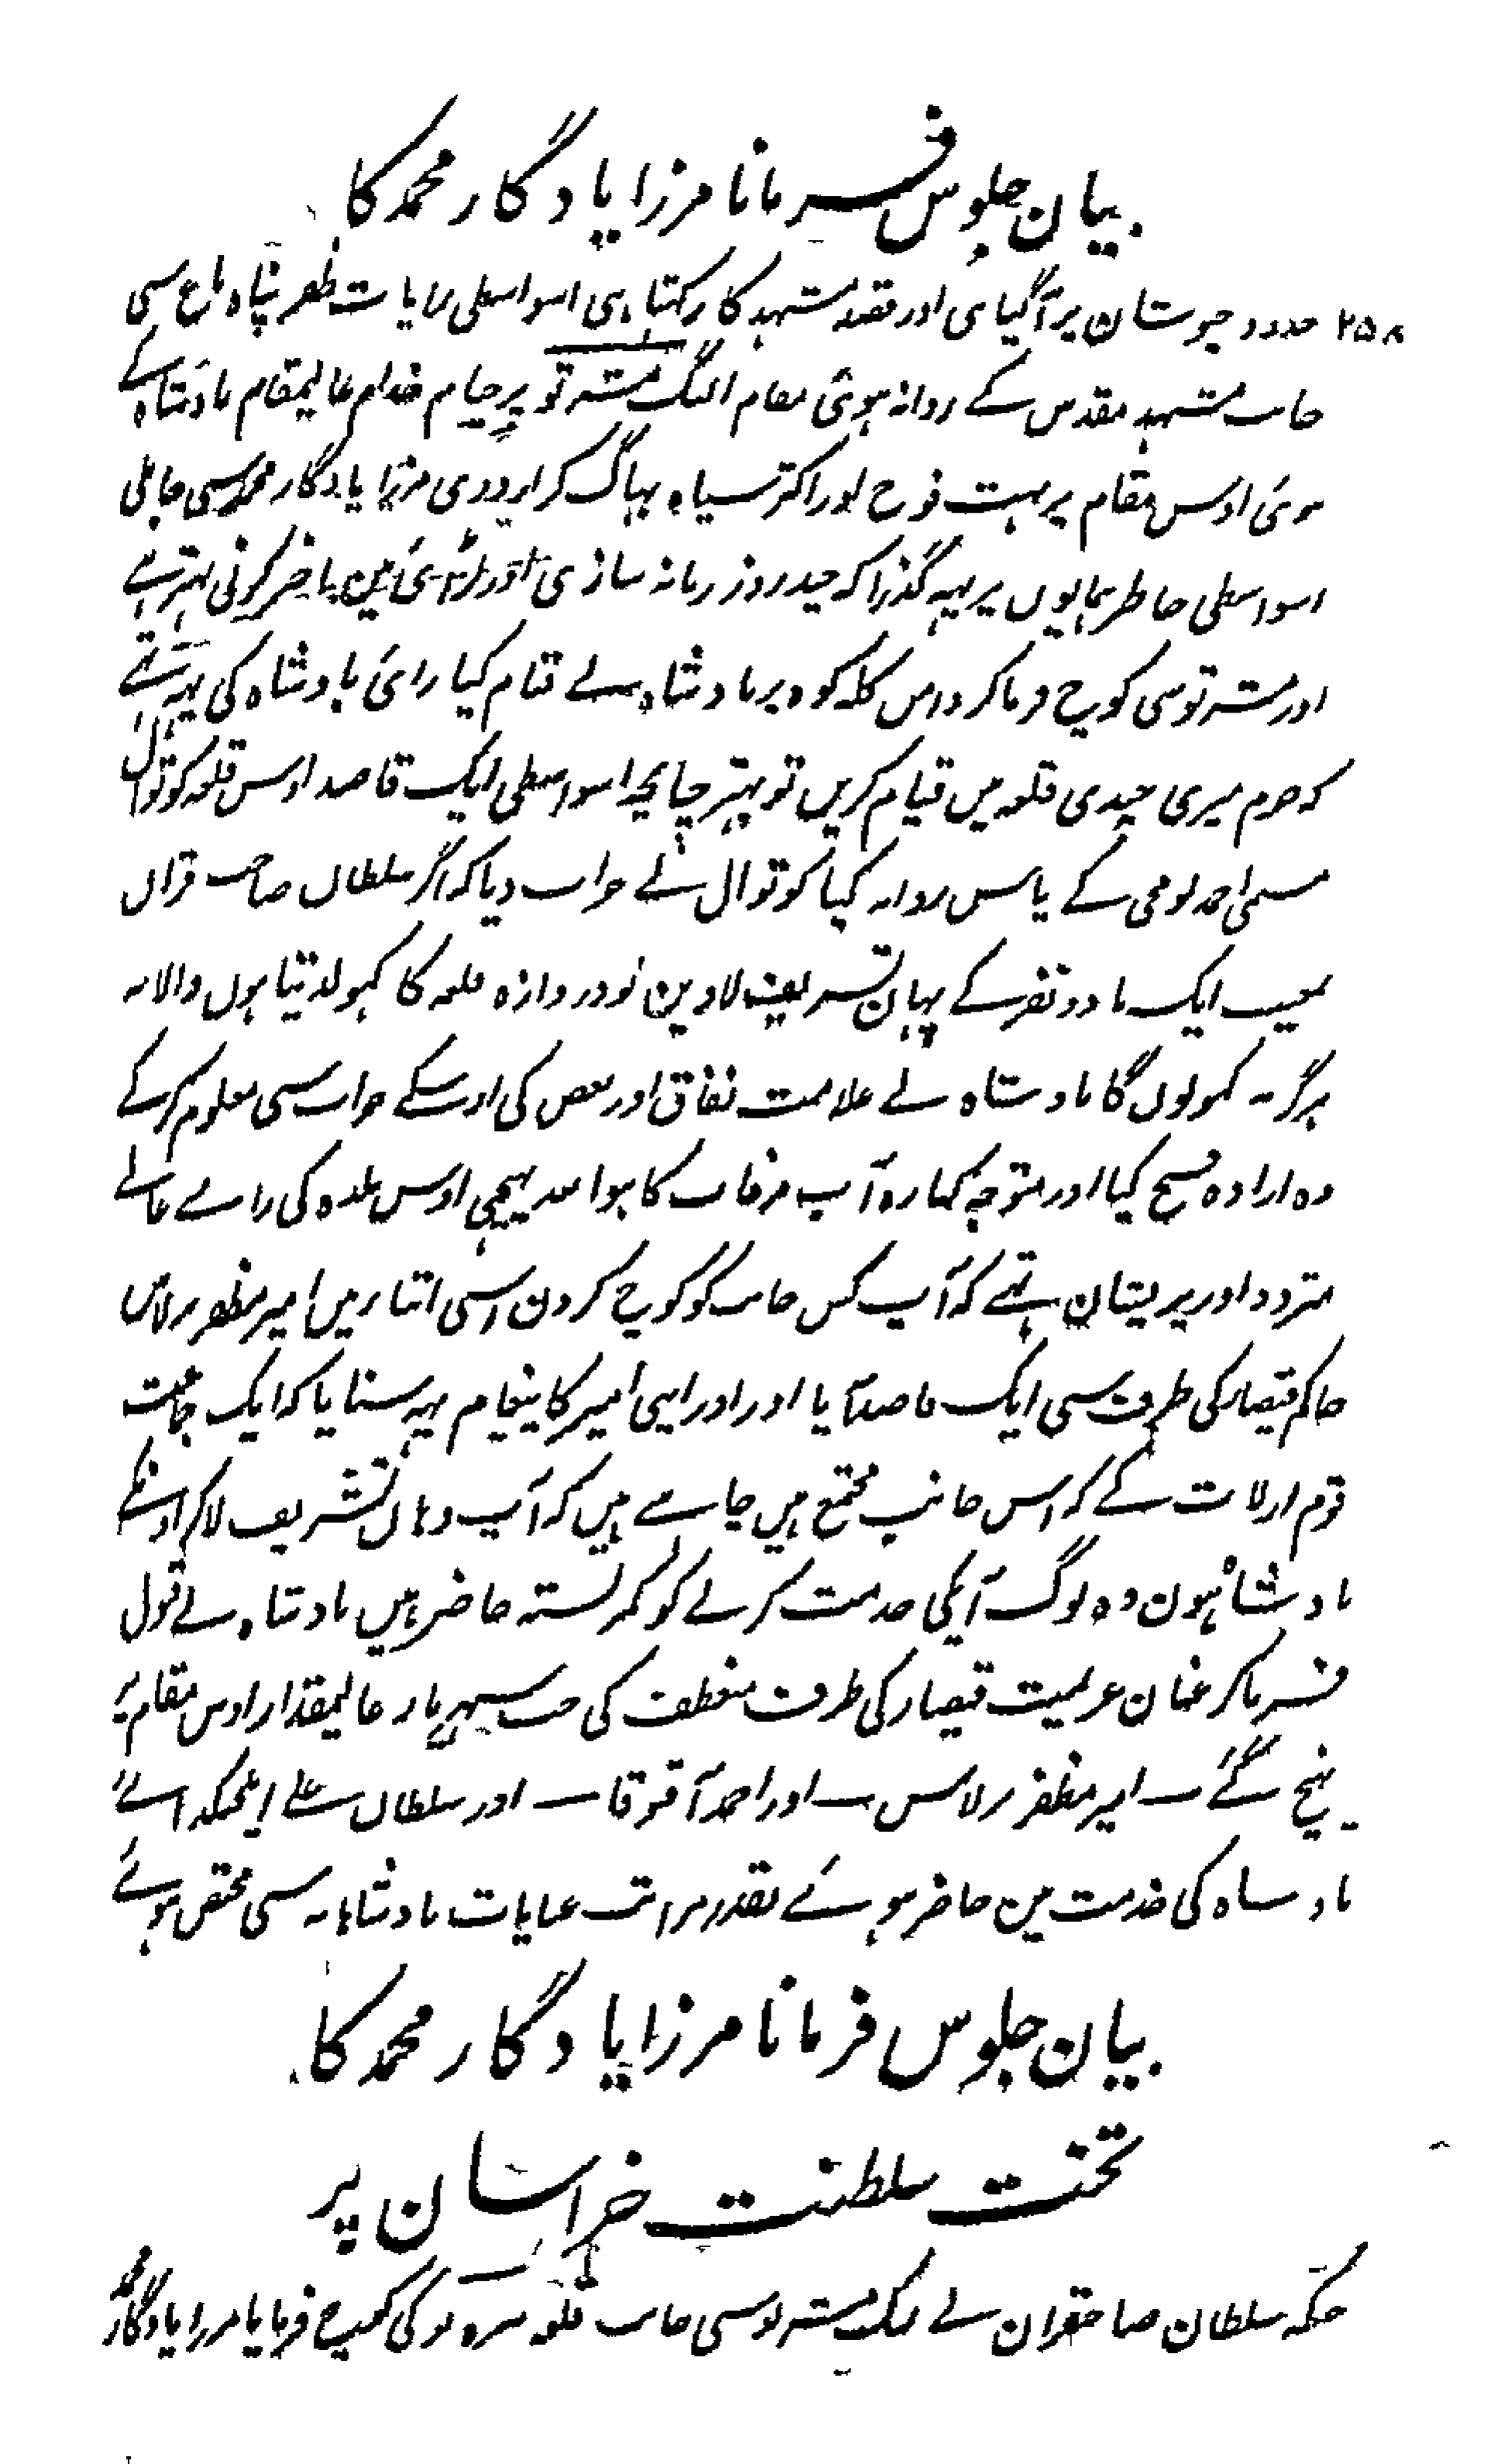 بیان جلوس فرمانا مرزا یادگار محمد کا
۲۵۸ حدود جوستان پر آگیا ہی اور قصد مشہد کا رکہتا ہی اسواسطی رایات ظفر پناہ باغ سی
جانب مشہد مقدس کے روانہ ہوئی مقام النگ مشہ تو پر خیام خدام عالیمقام بادشاہ کے
ہوئی اوس مقام پر بہت فوج اور اکثر سپاہ بہاگ کر اردوی مرزا یادگار محمد سی جا ملی
اسواسطی خاطر ہمایوں پر یہہ گذرا کہ چند روز زمانہ سازی اور لڑائی مین تاخیر کرنی بہتر ہے
اور مشہ تو سی کوچ فرما کر دامن کلہ کوہ پر بادشاہ نے قیام کیا رائی بادشاہ کی یہہ تہے
کہ حرم میری چندی قلعہ میں قیام کریں تو بہتر چنانچہ اسواسطی ایک قاصد اوس قلعہ کوتوال
مسمی احمد کے پاس روانہ کیا کوتوال نے جواب دیا کہ اگر سلطان صاحب قران
ایک یا دو نفر کے یہان تشریف لاوین تو دروازہ قلعہ کا کہولدیتا ہوں والا نہ
ہرگز نہ کہولوں گا بادشاہ نے علامت نفاق اور بغض کی اوسکے جواب سی معلوم کر کے
وہ ارادہ فسخ کیا اور متوجہ کنارہ آب مرغاب کا ہوا بعد پہنچی اوس بلدہ کی رائے عالے
متردد اور پریشان تہے کہ آپ کس جانب کو کوچ کروں اسی اثنا میں امیر مظفر برلاس
حاکم قیصار کی طرف سی ایک قاصد آیا اور اور اپنی امیر کا پیغام یہہ سنایا کہ ایک جماعت
قوم ارلات کے کہ اس جانب مجتمع ہیں چاہتے ہیں کہ آپ وہاں تشریف لا کر اونکے
بادشاہ ہون وہ لوگ آپکی خدمت کرنے کو کمر بستہ حاضر ہیں بادشاہ نے قبول
فرما کر عنان عزیمت قیصار کی طرف منعطف کی جب شہریار عالیمقدار اوس مقام پر
پہنچ گئے امیر مظفر برلاس اور احمد آقوقات اور سلطان علی
بادشاہ کی خدمت مین حاضر ہوئے بقدر مراتب عنایات بادشاہانہ سی مختص ہوئے
بیان جلوس فرمانا مرزا یادگار محمد کا
تخت سلطنت خراسان پر
جبکہ سلطان صاحبقران نے النگ مشہ تو سی جانب قلعہ کی کوچ فرمایا مرزا یادگار محمد